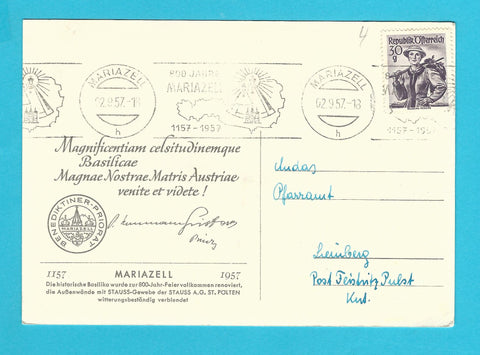 4
Republik Österreich
30
g
MARIAZELL
02.9.57.-18
h
800 JAHRE
MARIAZELL
1157-1957
MARIAZELL
02.9.57.-18
h
1157-1957
Magnificentiam celsitudinemque
Basilicae
Magnae Nostrae Matris Austriae
venite et videte !
BENEDIKTINER-PRIORAT
MARIAZELL
1157 MARIAZELL 1957
Die historische Basilika wurde zur 800-Jahr-Feier vollkommen renoviert,
die Außenwände mit STAUSS-Gewebe der STAUSS A.G. ST. PÖLTEN
witterungsbeständig verblendet
Pfarramt
Post Feistritz Pulst